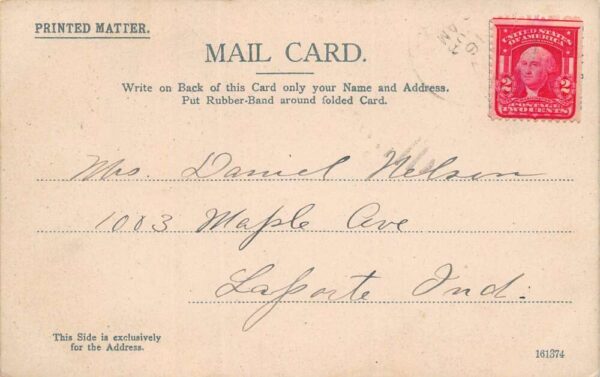 PRINTED MATTER.
MAIL CARD.
Write on Back of this Card only your Name and Address.
Put Rubber-Band around folded Card.
UNITED STATES
OF AMERICA
2 2
POSTAGE
TWO CENTS
AM
Mrs. Daniel Nelson
1003 Maple Ave
LaPorte Ind.
This Side is exclusively
for the Address.
161374